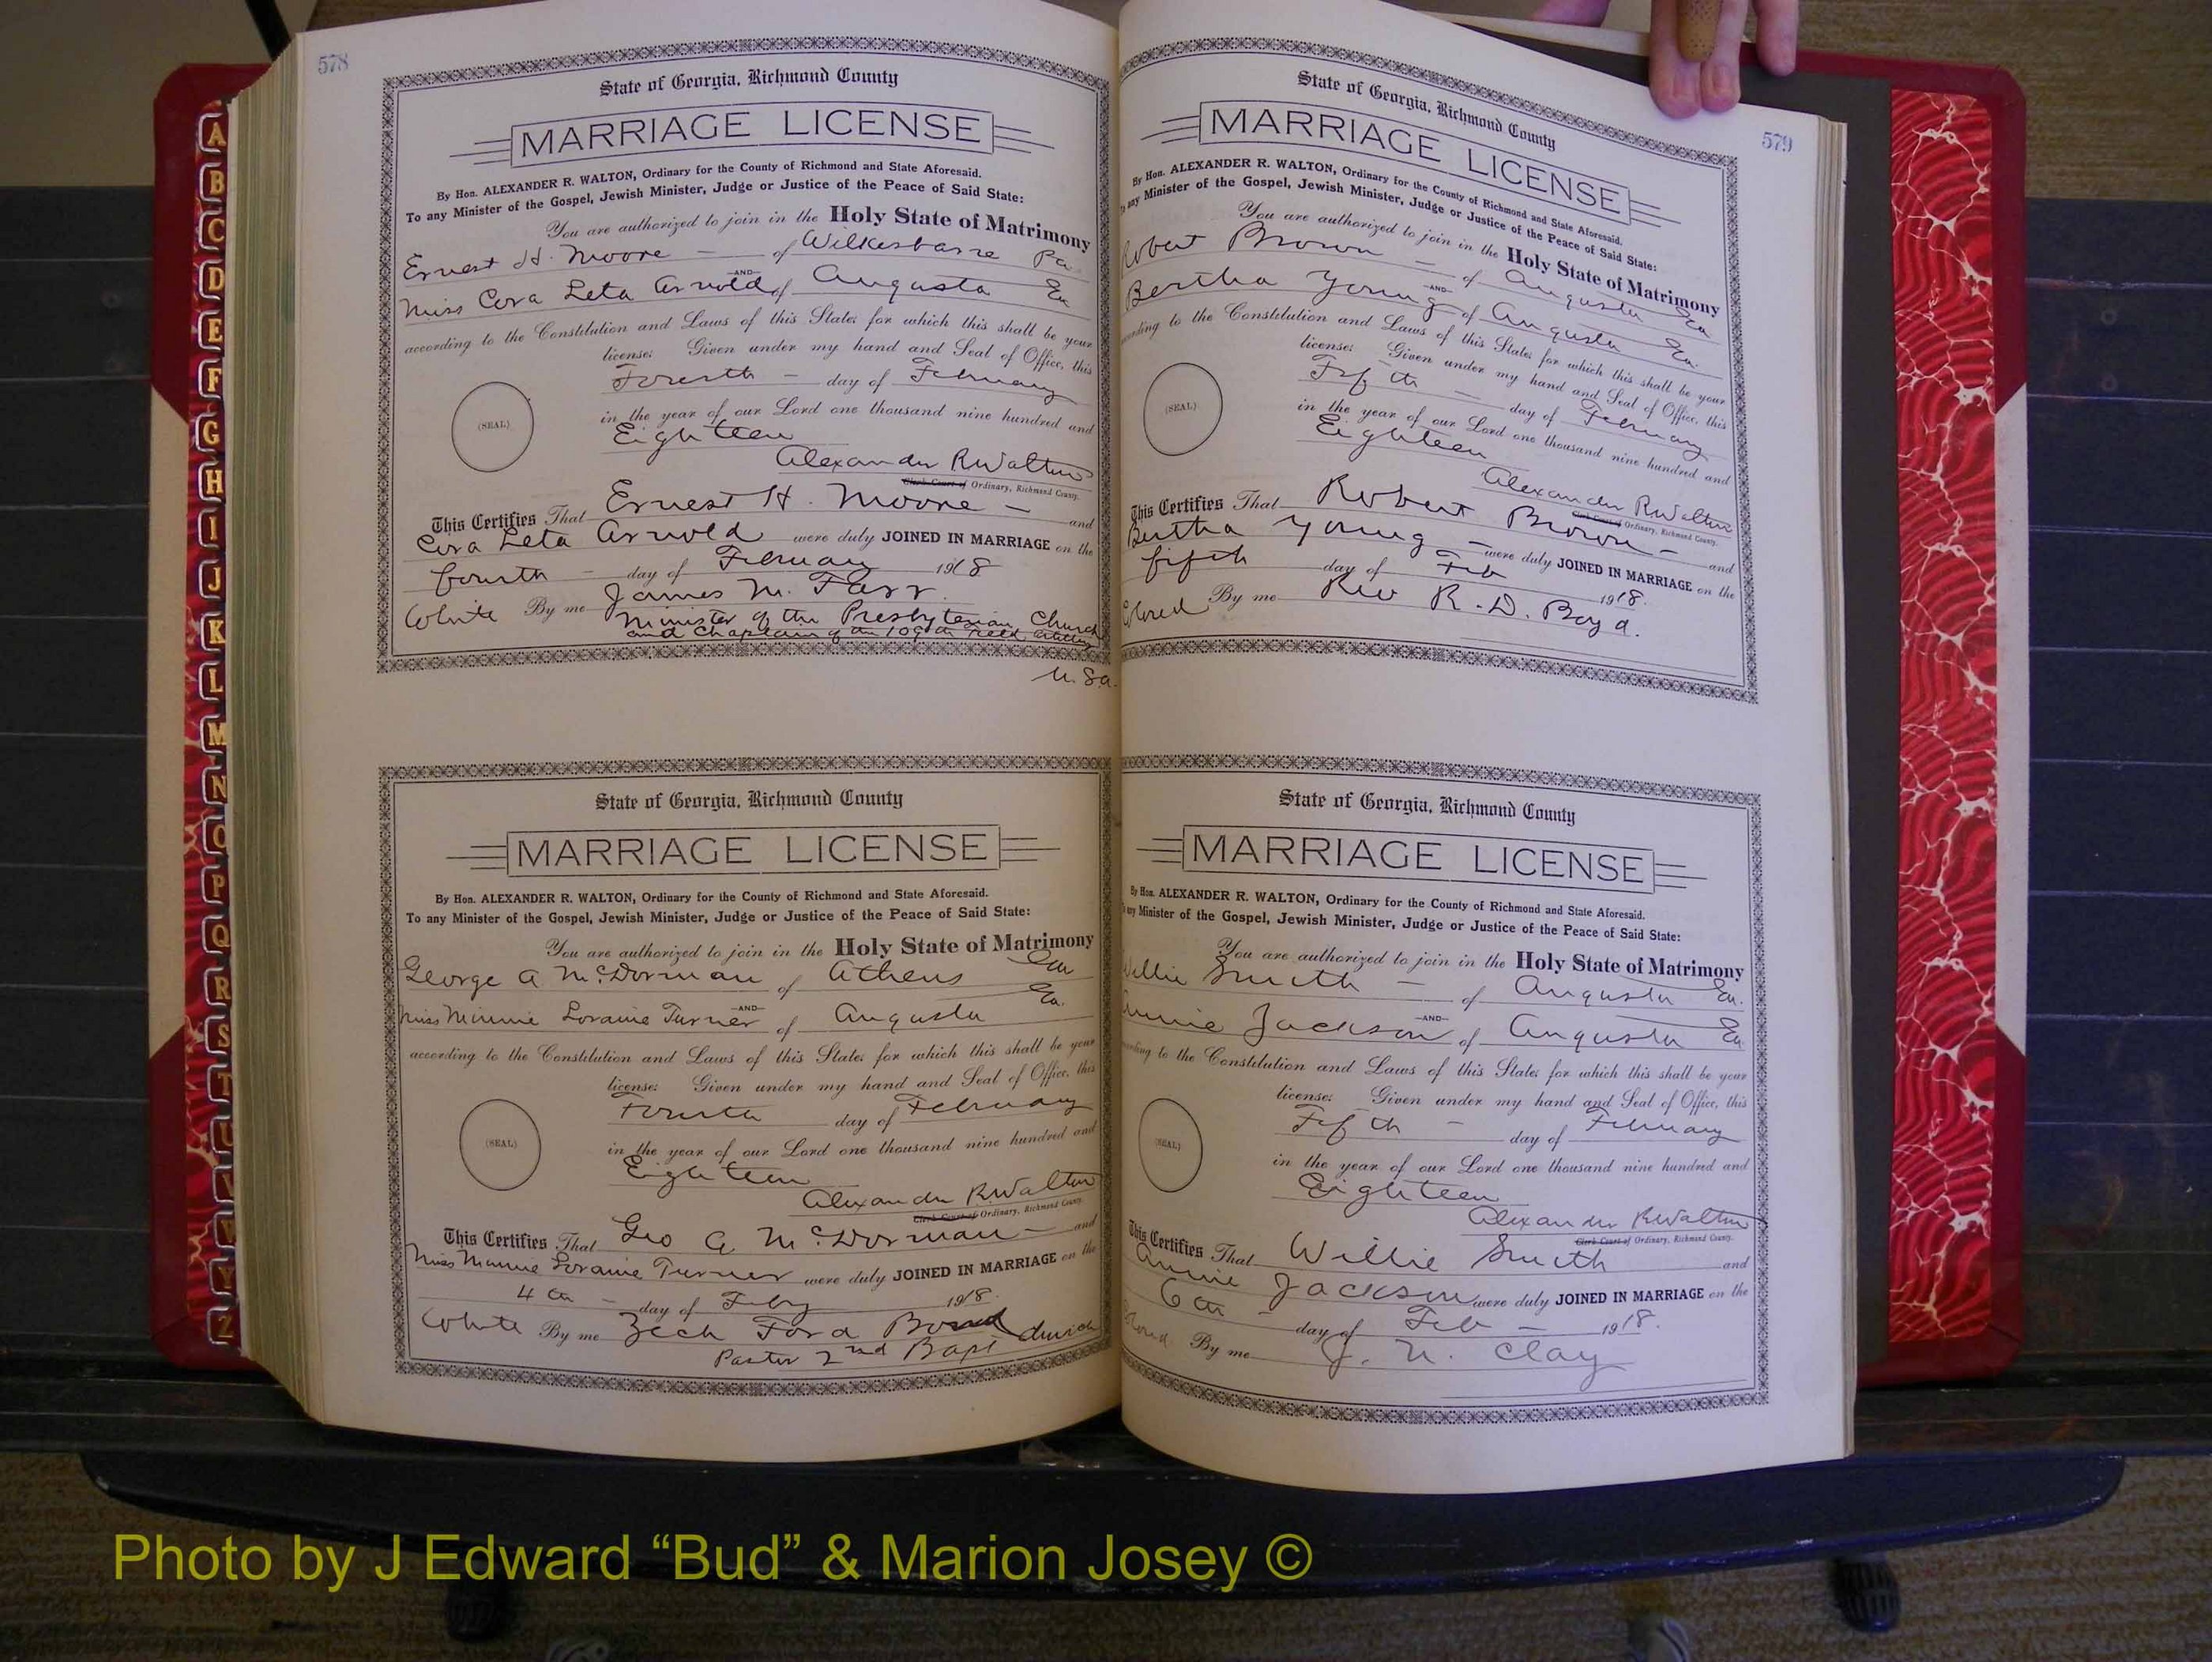 578
State of Georgia, Richmond County
MARRIAGE LICENSE
By Hon. ALEXANDER R. WALTON, Ordinary for the County of Richmond and State Aforesaid.
To any Minister of the Gospel, Jewish Minister, Judge or Justice of the Peace of Said State:
You are authorized to join in the Holy State of Matrimony
Ernest H. Moore — of Wilkesbarre Pa
—AND—
Miss Cora Leta Arnold of Augusta Ga
according to the Constitution and Laws of this State; for which this shall be your
license: Given under my hand and Seal of Office, this
Fourth — day of February
in the year of our Lord one thousand nine hundred and
Eighteen
(SEAL)
Alexander R Walton
Clerk Court of Ordinary, Richmond County.
This Certifies That Ernest H. Moore — and
Cora Leta Arnold were duly JOINED IN MARRIAGE on the
fourth — day of February 1918
White By me James M. Farr.
Minister of the Presbyterian Church
and Chaplain of the 109th Field Artillery
U.S.A.
State of Georgia, Richmond County
MARRIAGE LICENSE
By Hon. ALEXANDER R. WALTON, Ordinary for the County of Richmond and State Aforesaid.
To any Minister of the Gospel, Jewish Minister, Judge or Justice of the Peace of Said State:
You are authorized to join in the Holy State of Matrimony
George A McDorman of Athens Ga
—AND—
Miss Minnie Loraine Turner of Augusta Ga.
according to the Constitution and Laws of this State; for which this shall be your
license: Given under my hand and Seal of Office, this
Fourth day of February
in the year of our Lord one thousand nine hundred and
Eighteen
(SEAL)
Alexander R. Walton
Clerk Court of Ordinary, Richmond County.
This Certifies That Geo A McDorman — and
Miss Minnie Loraine Turner were duly JOINED IN MARRIAGE on the
4th — day of Feby 1918.
White By me Zech Ford Bond
Pastor 2nd Bapt church
579
State of Georgia, Richmond County
MARRIAGE LICENSE
By Hon. ALEXANDER R. WALTON, Ordinary for the County of Richmond and State Aforesaid.
To any Minister of the Gospel, Jewish Minister, Judge or Justice of the Peace of Said State:
You are authorized to join in the Holy State of Matrimony
Robert Brown — of Augusta Ga
—AND—
Bertha Young of Augusta Ga.
according to the Constitution and Laws of this State; for which this shall be your
license: Given under my hand and Seal of Office, this
Fifth — day of February
in the year of our Lord one thousand nine hundred and
Eighteen
(SEAL)
Alexander R Walton
Clerk Court of Ordinary, Richmond County.
This Certifies That Robert Brown — and
Bertha Young — were duly JOINED IN MARRIAGE on the
fifth day of Feb 1918.
Colored By me Rev R. D. Boyd.
State of Georgia, Richmond County
MARRIAGE LICENSE
By Hon. ALEXANDER R. WALTON, Ordinary for the County of Richmond and State Aforesaid.
To any Minister of the Gospel, Jewish Minister, Judge or Justice of the Peace of Said State:
You are authorized to join in the Holy State of Matrimony
Willie Smith — of Augusta Ga.
—AND—
Annie Jackson of Augusta Ga
according to the Constitution and Laws of this State; for which this shall be your
license: Given under my hand and Seal of Office, this
Fifth — day of February
in the year of our Lord one thousand nine hundred and
Eighteen
(SEAL)
Alexander R Walton
Clerk Court of Ordinary, Richmond County.
This Certifies That Willie Smith and
Annie Jackson were duly JOINED IN MARRIAGE on the
6th — day of Feb — 1918.
Colored By me J. N. Clay
A
B
C
D
E
F
G
H
I
J
K
L
M
N
O
P
Q
R
S
T
U
V
W
Y
Z
Photo by J Edward “Bud” & Marion Josey ©